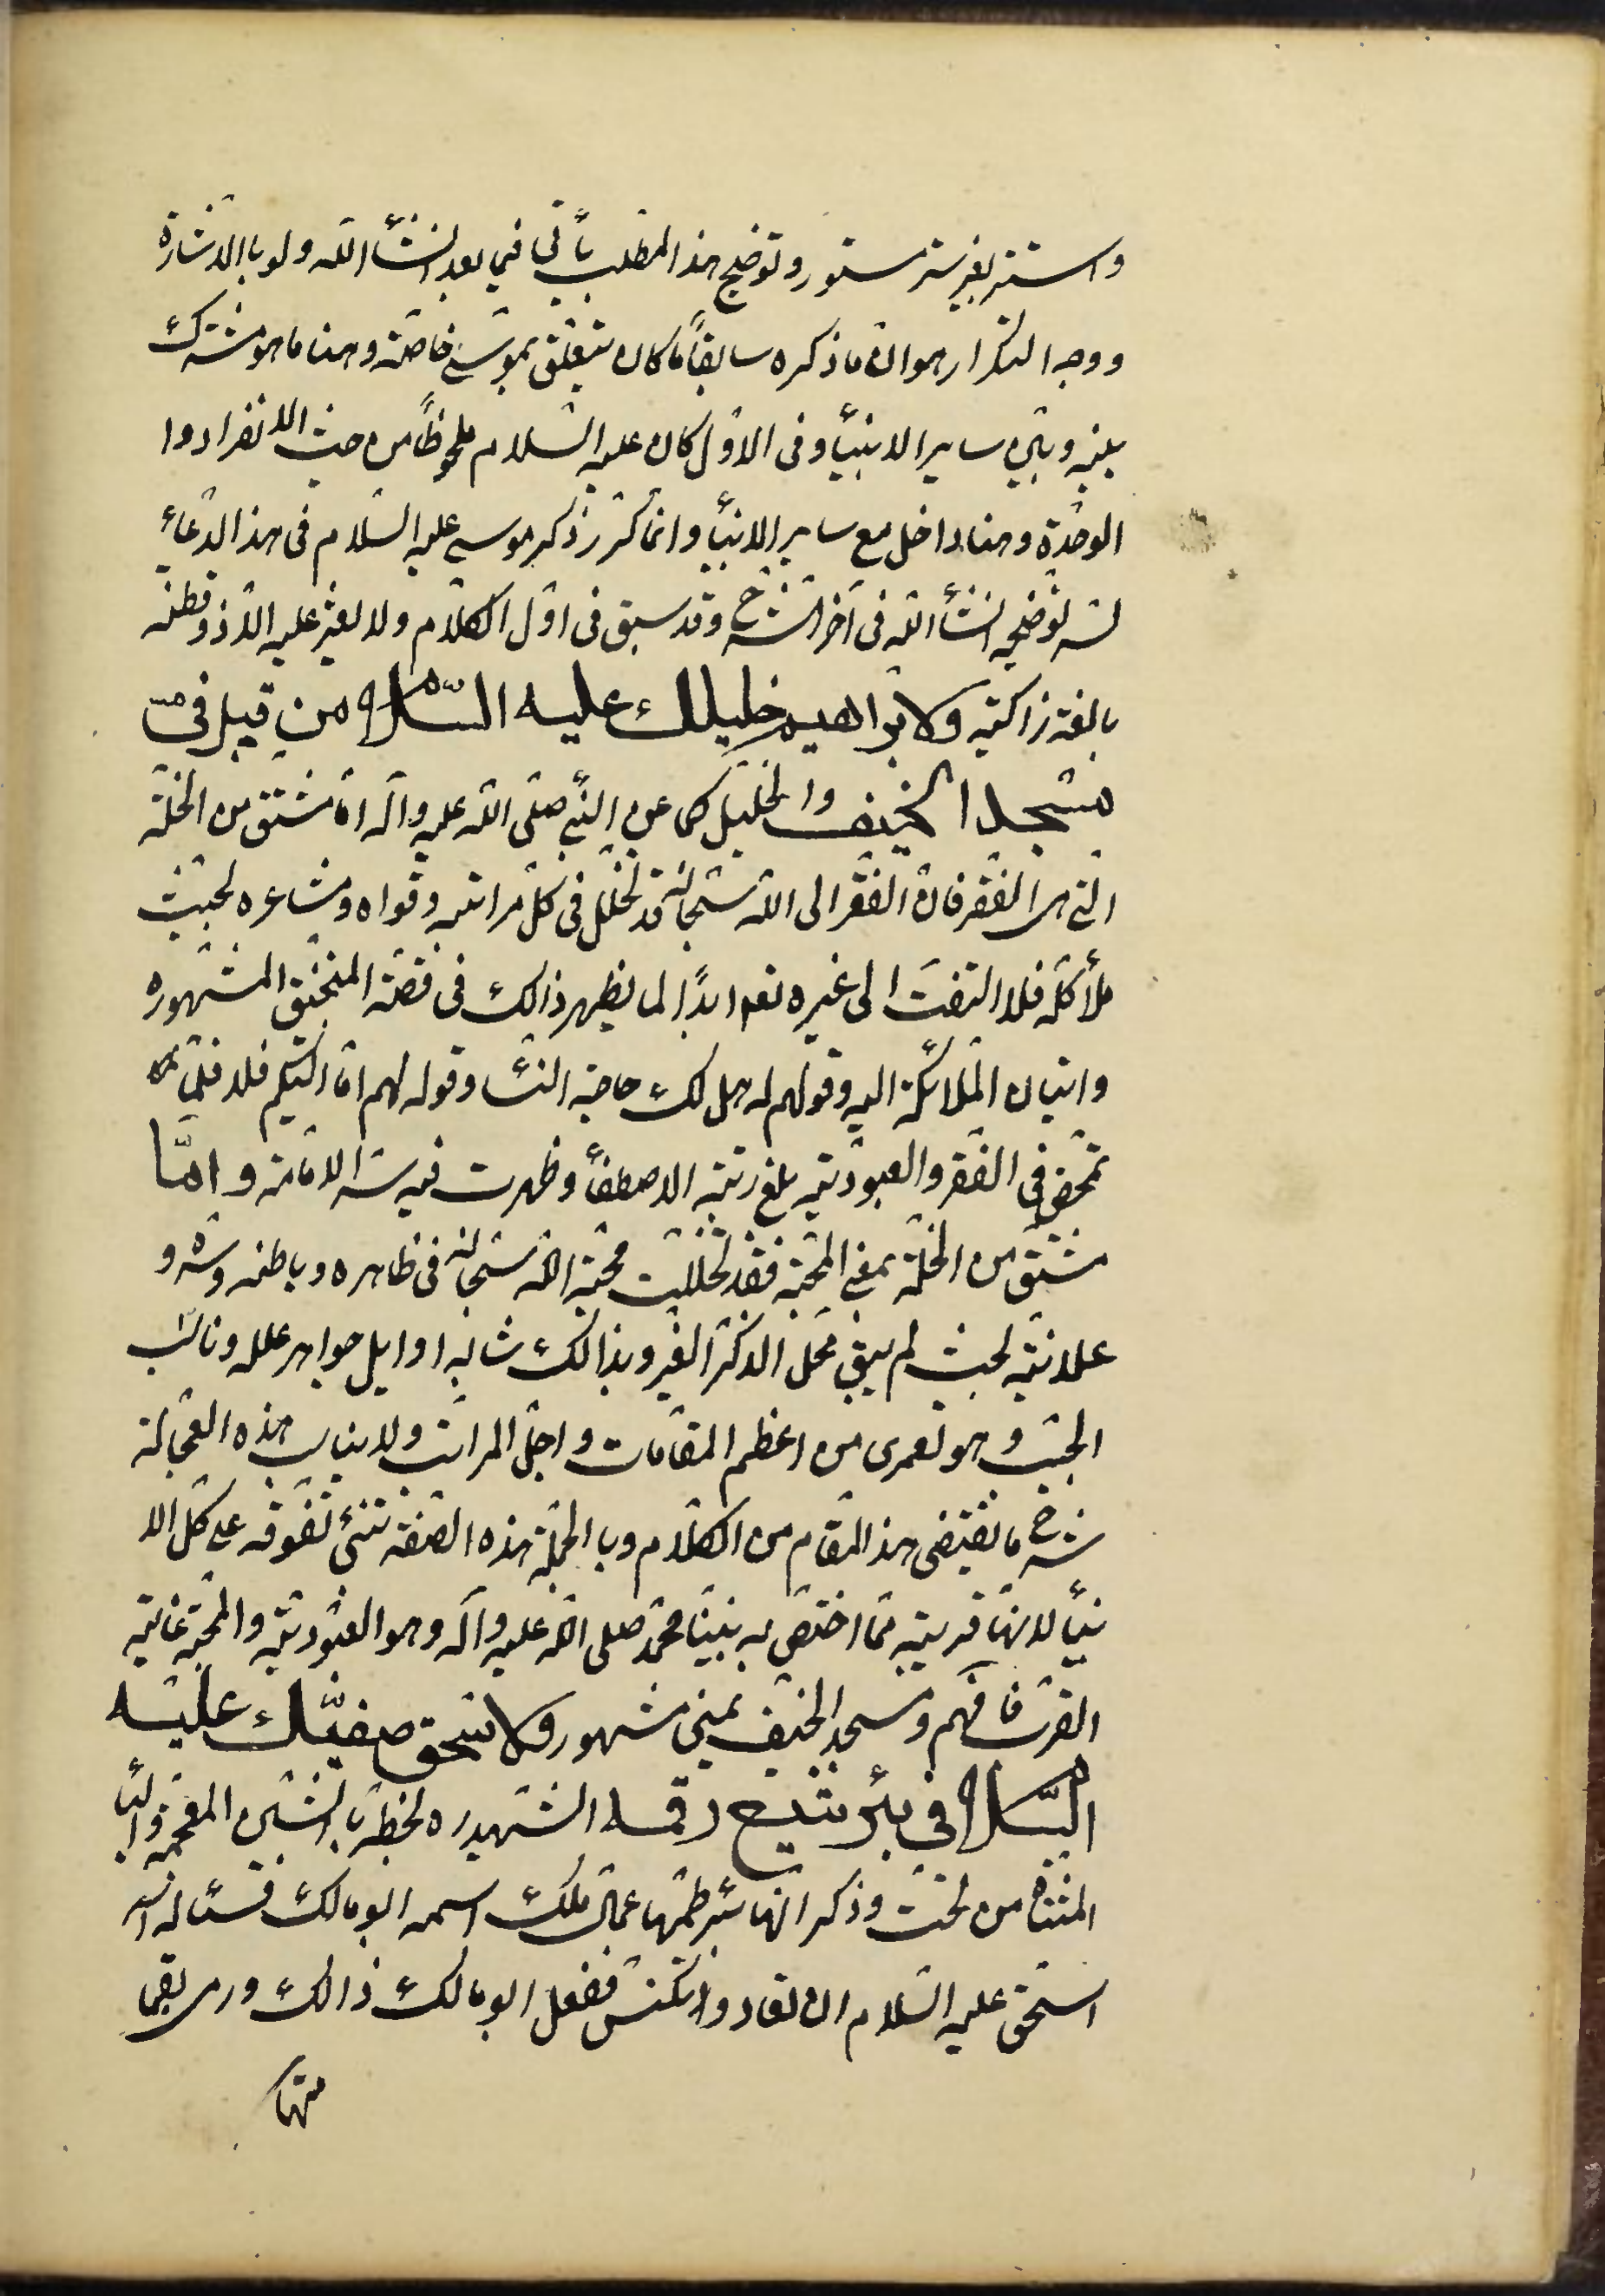 واستتر بغير ستر مستور وتوضيح هذا المطلب يأتي فيما بعد انشأ الله ولو با الاشارة
ووجه التكرار هو ان ما ذكره سابقاً ما كان يتعلق بموسى خاصّة وهنا ما هو مشترك
بينه وبين ساير الانبيأ وفى الاوّل كان عليه السّلام ملحوظاً من حيث الانفراد وا
الوحدة وهنا داخل مع ساير الانبيأ وانما كرّر ذكر موسى عليه السّلام فى هذا الدّعأ
لسر توضيحه انشأ الله فى آخر الشرح وقد سبق فى اوّل الكلام ولا يعثر عليه الا ذو فطنه
بالغة زاكية ولابراهيم خليلك عليه السّلام من قبل في
مسجد الخيف والخليل كما عن النبي صلى الله عليه وآله امّا مشتق من الخلّة
التي هى الفقر فان الفقر الى الله سبحانه قد تخلل فى كل مراتبه وقواه ومشاعره بحيث
ملأ كله فلا التفت الى غيره تعم ابداً لما يظهر ذالك فى قصّة المنجنيق المشهوره
واتيان الملائكة اليه وقولهم له هل لك حاجة النسا وقوله لهم امّا اليكم فلا فلمّا
تمحض في الفقر والعبوديّة بلغ رتبة الاصطفأ وظهرت فيه سر الامامة وامّا
مشتق من الخلّة بمعنى المحبّة فقد تخللت محبّة الله سبحانه فى ظاهره وباطنه وسرّه و
علانيته بحيث لم يبق محل لذكر الغير وبذالك شابه اوايل جواهر علله
الحبيب وهو لعمرى من اعظم المقامات واجلّ المراتب ولا يناسب هذه العجالة
شرح ما يقتضى هذا المقام من الكلام وبا الجملة هذه الصفة تنبئ تفوقه على كل الا
نبيأ لانها قريبة ممّا اختص به نبيّنا محمّد صلى الله عليه وآله وهو العبوديّة والمحبّة غاية
القرب فافهم ومسجد الخيف بمنى مشهور ولاسحق صفيّك عليه
السّلام في بئر شيع رقمه الشهيد ره بخطّه با الشين المعجمة واليأ
المثناة من تحت وذكر انّها طمّها عمال ملك اسمه ابو مالك فسئاله
اسحق عليه السّلام ان تعاد وتكنس ففعل ابو مالك ذالك ورمى بقما
متها